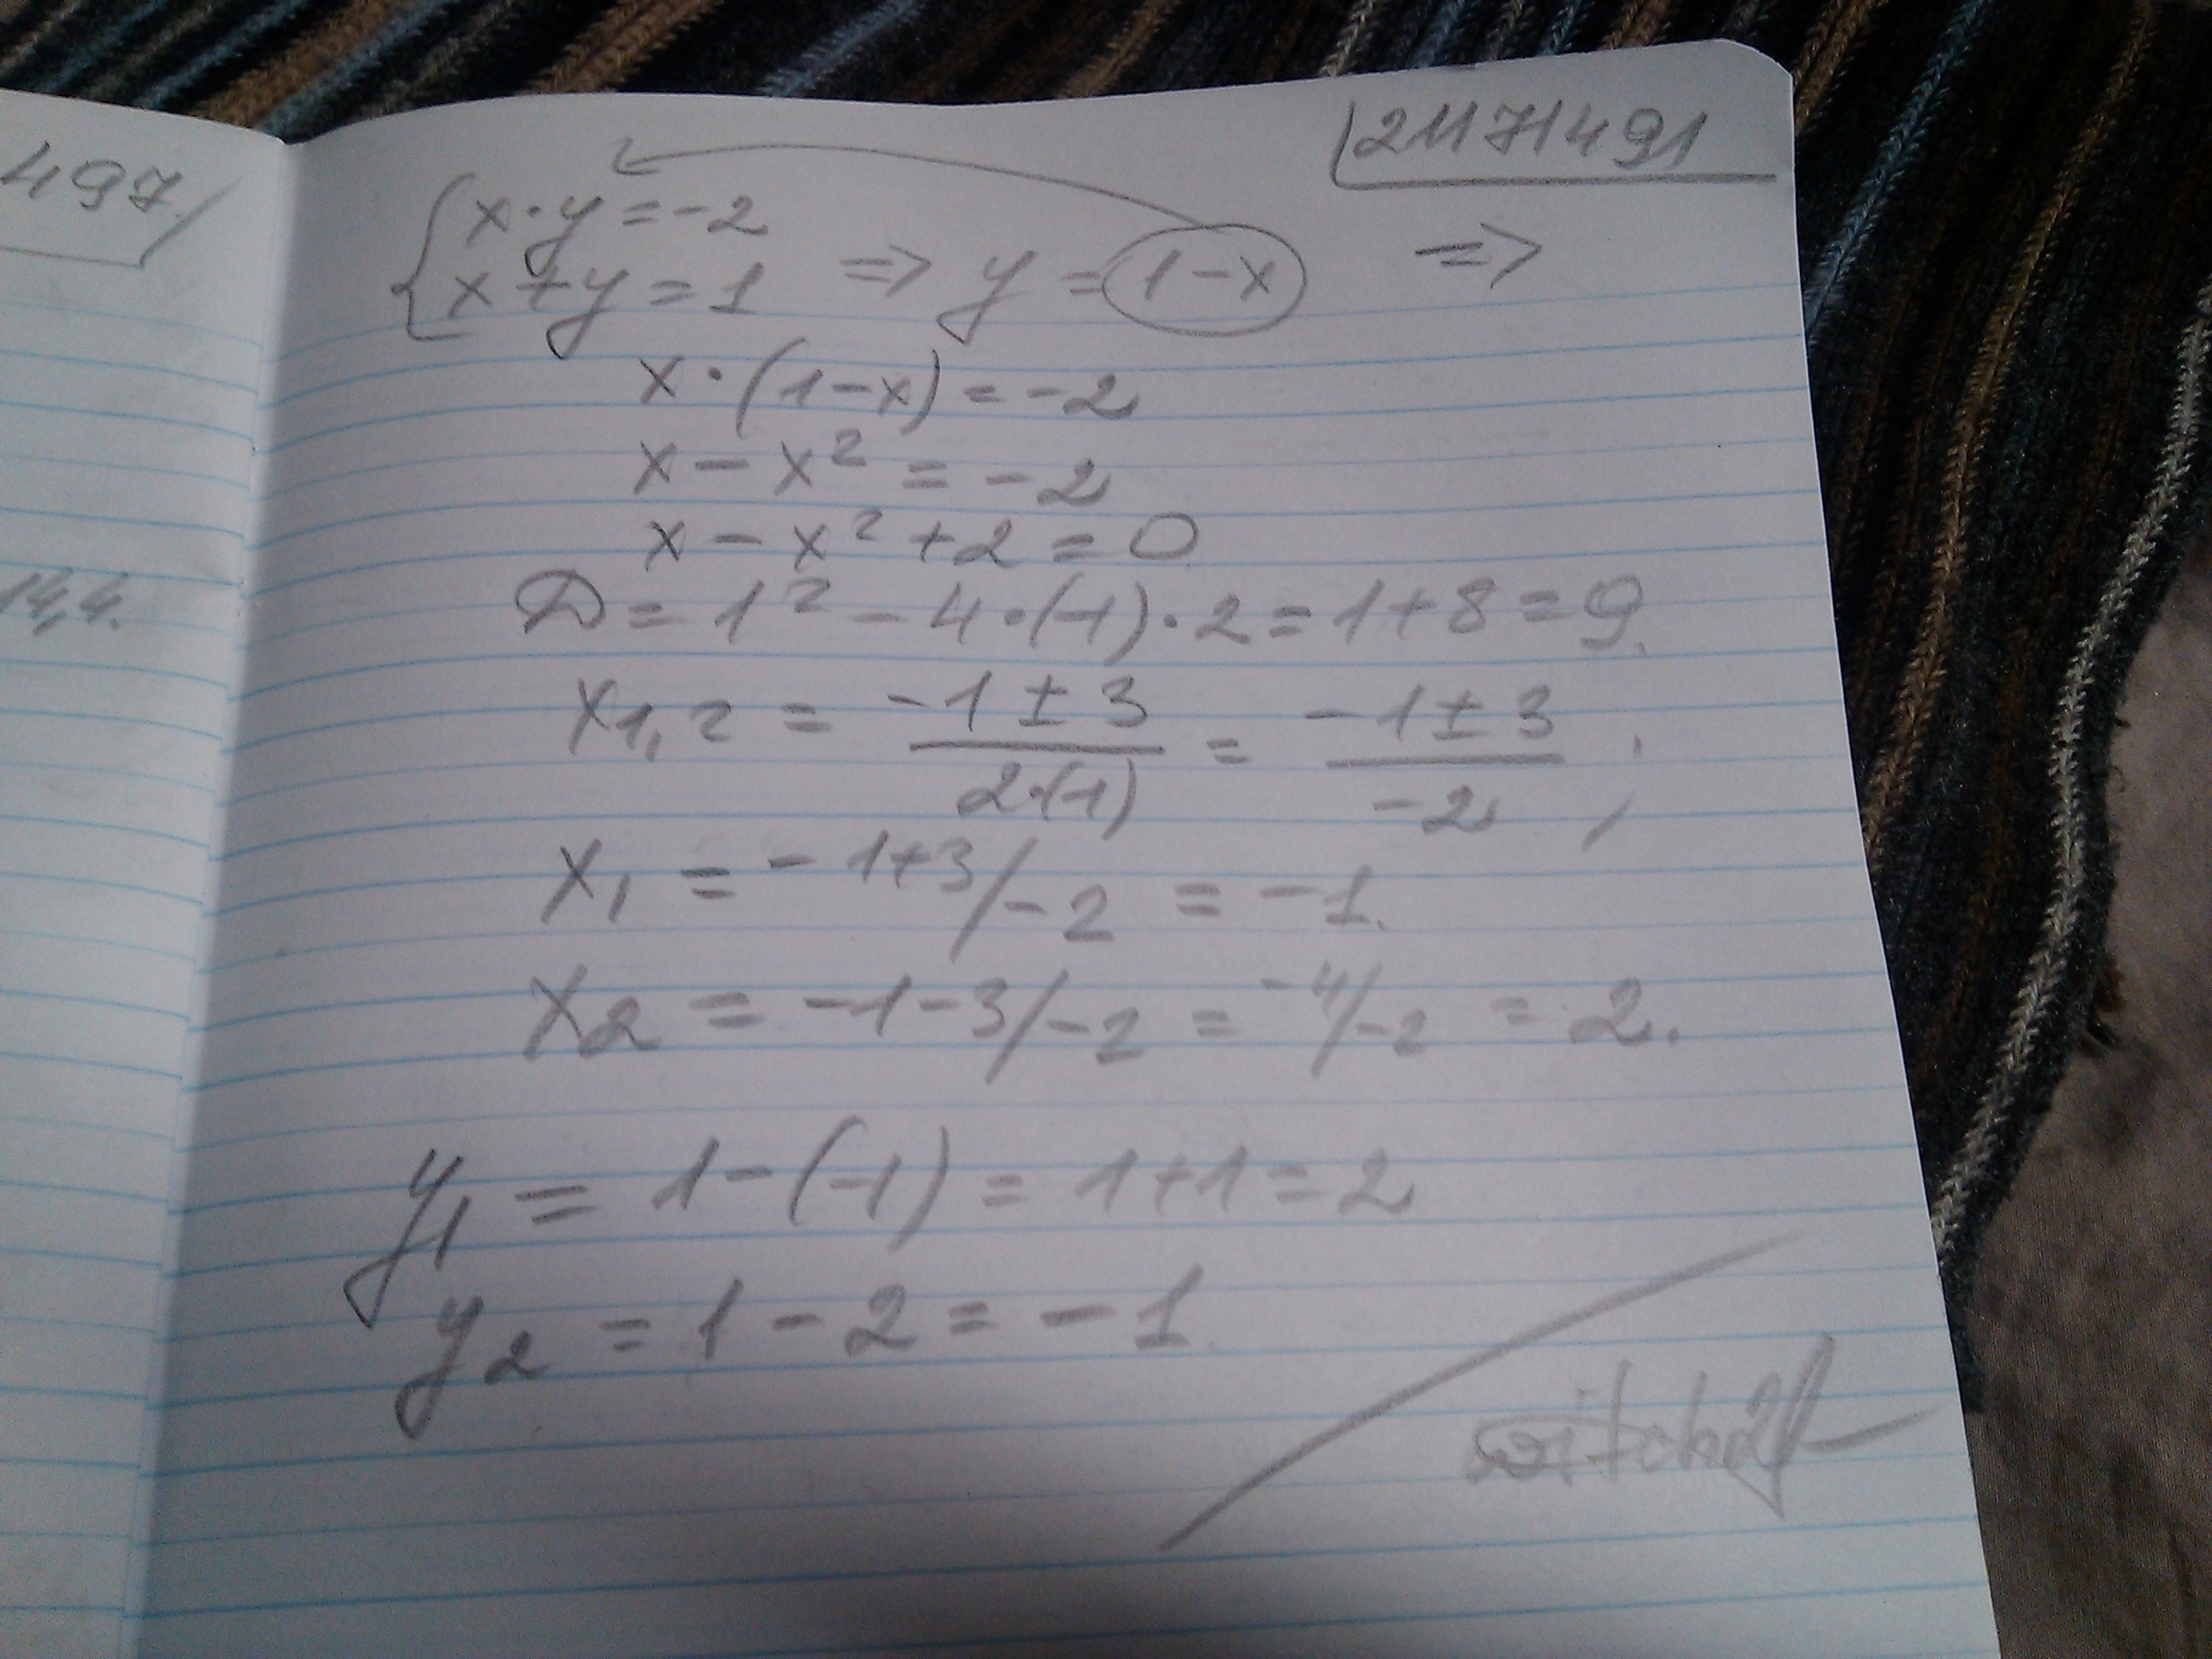 497.
14,4.
21171491
x·y=-2
x+y=1 => y=1-x =>
x·(1-x)=-2
x-x²=-2
x-x²+2=0
D=1²-4·(-1)·2=1+8=9.
x1,2 = -1±3/2·(-1) = -1±3/-2 ;
x1 = -1+3/-2 = -1.
x2 = -1-3/-2 = -4/-2 = 2.
y1 = 1-(-1) = 1+1=2
y2 = 1-2=-1.